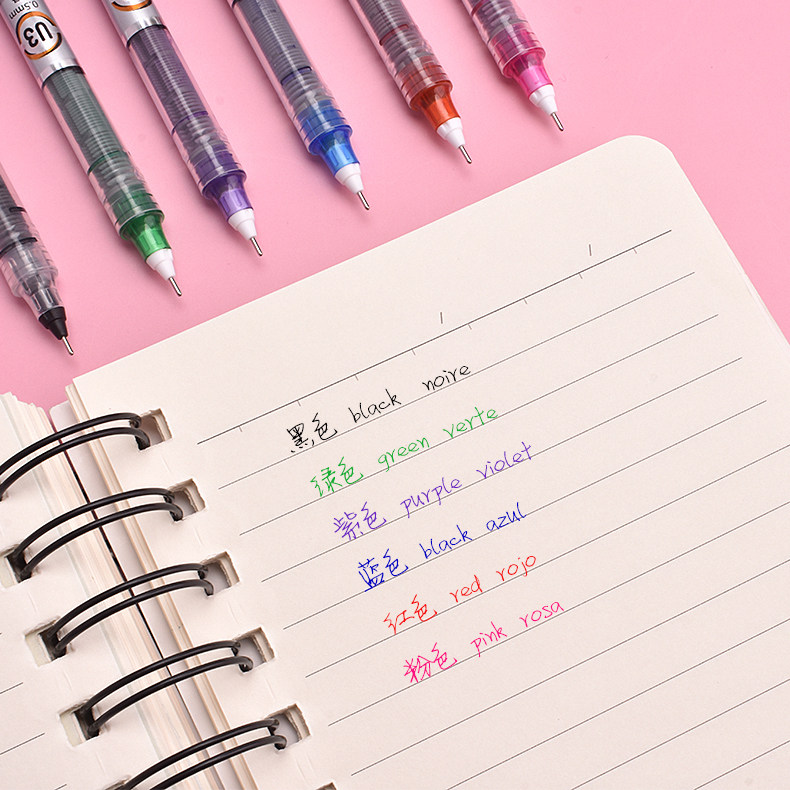 0.5mm
U3
U3
黑色 black noire
绿色 green verte
紫色 purple violet
蓝色 black azul
红色 red rojo
粉色 pink rosa